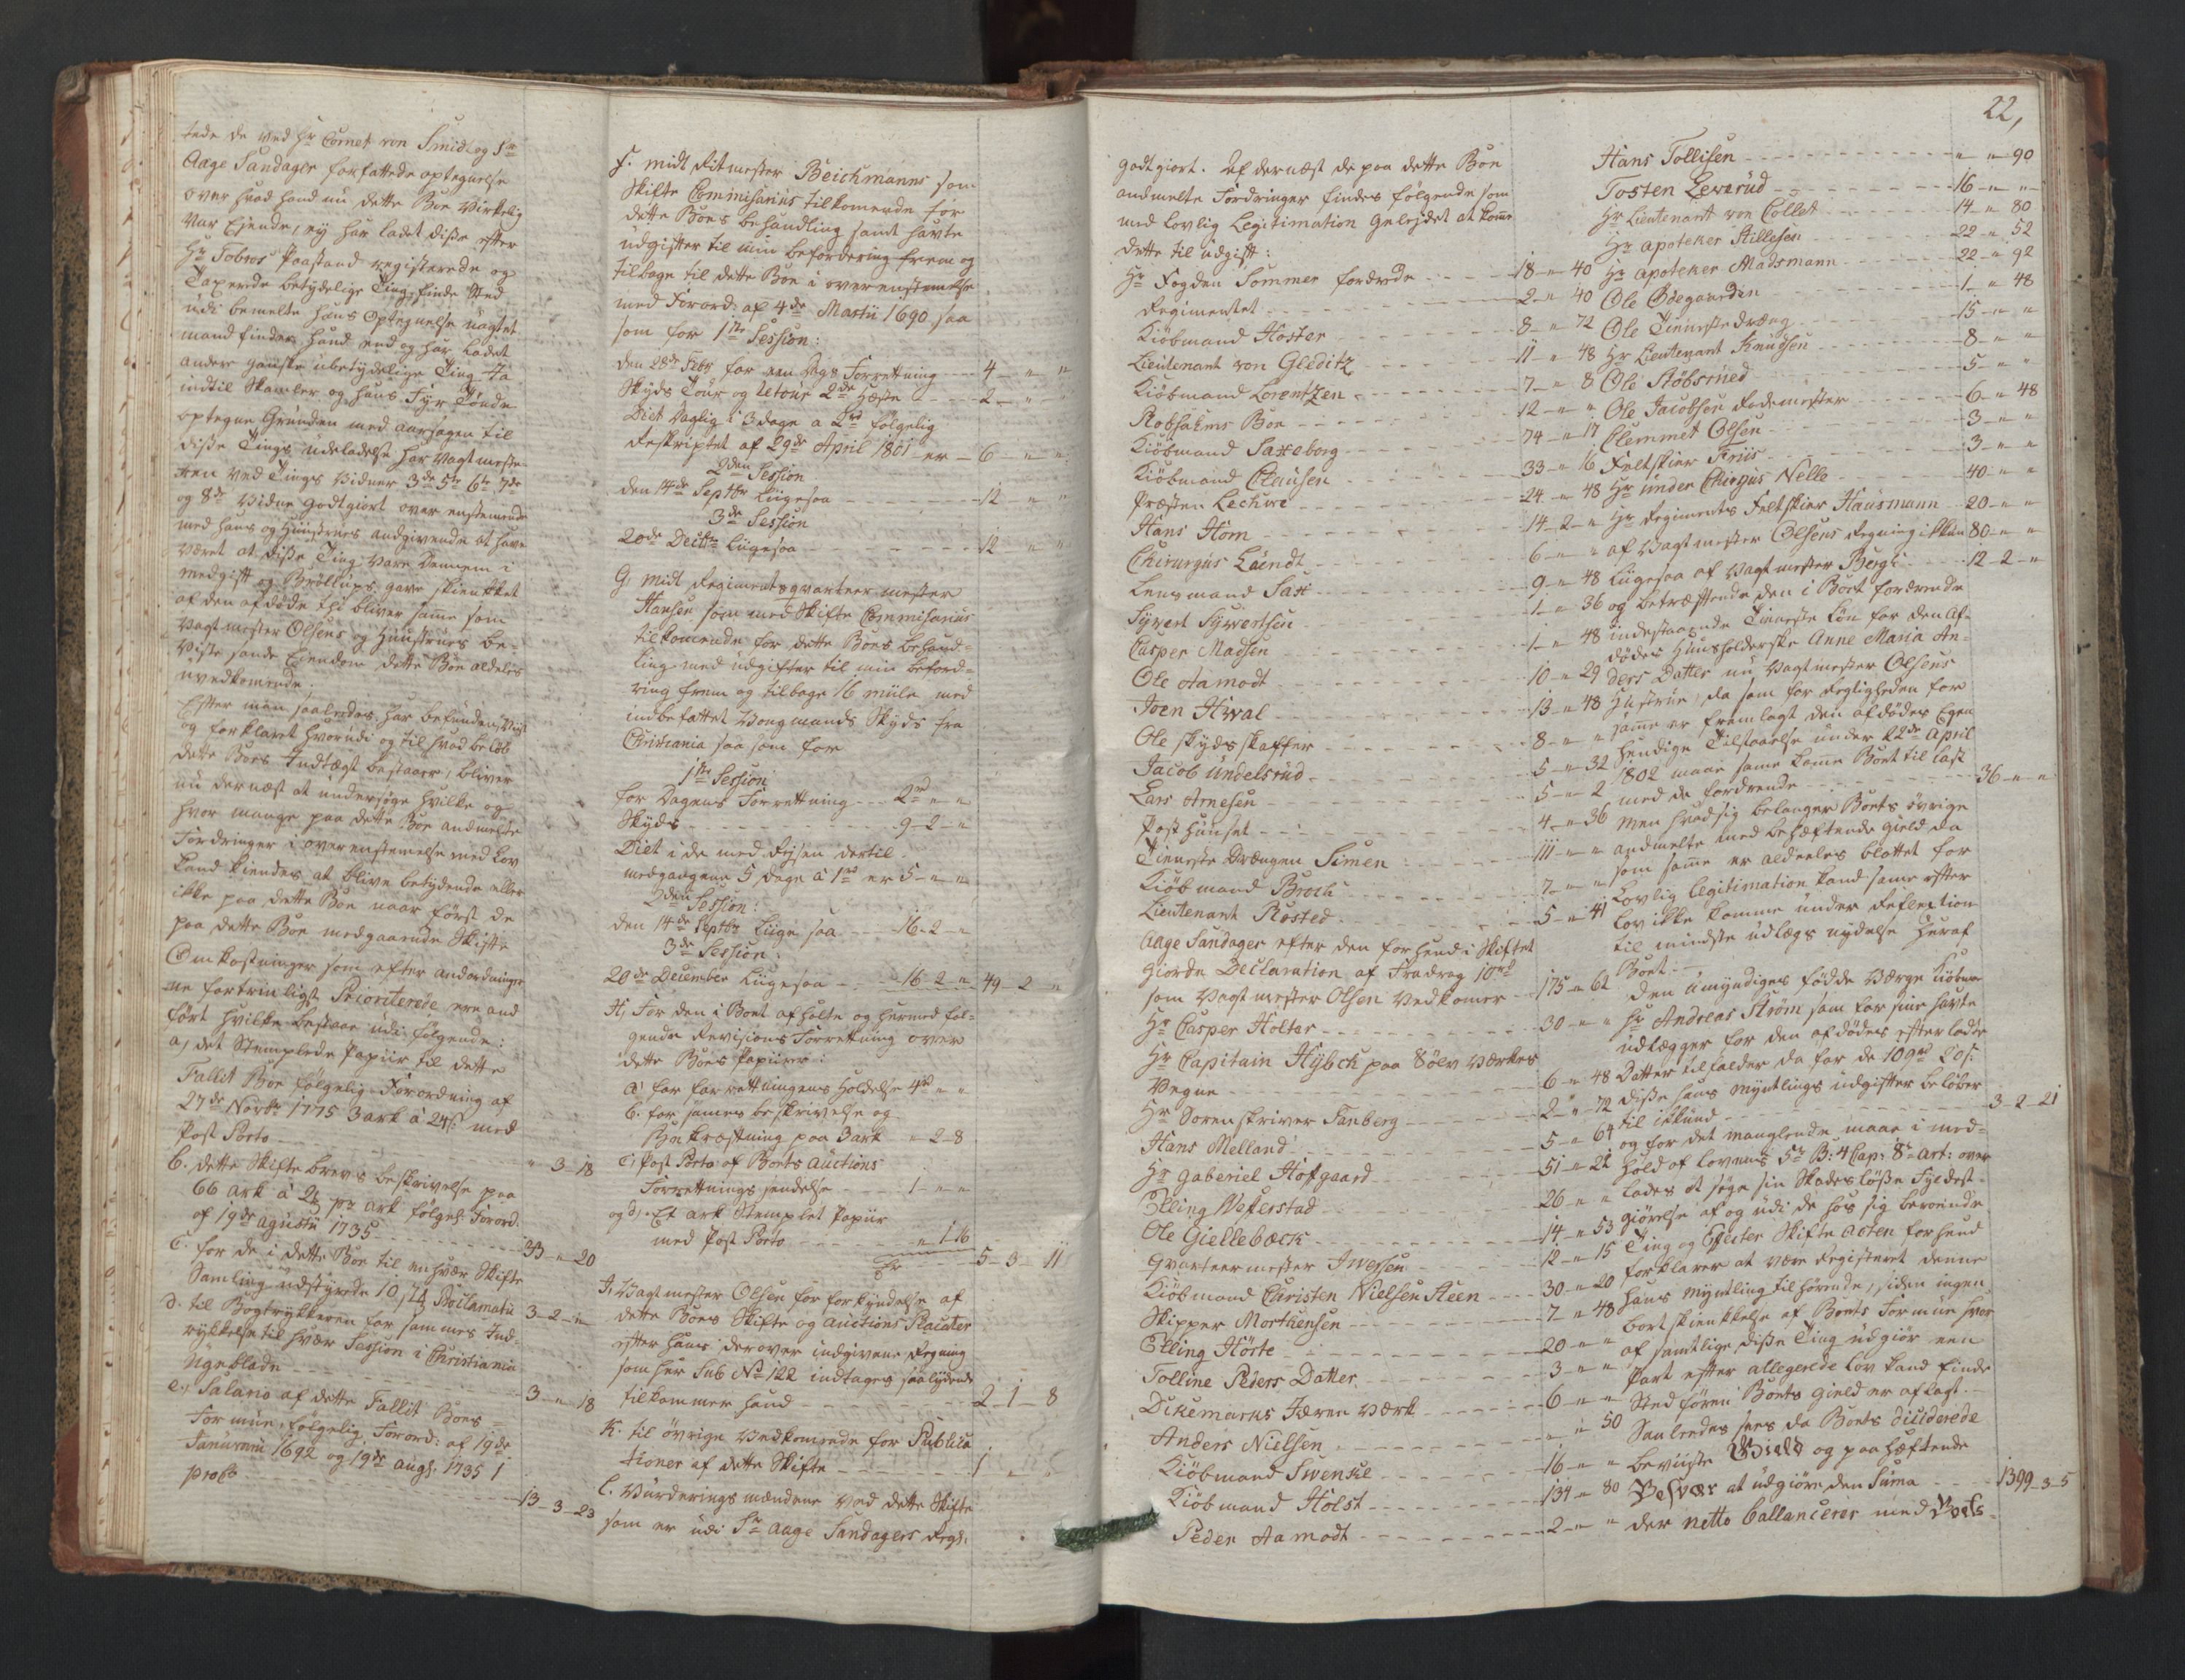 tede de ved Hr Cornet von Smidt og Sr
Aage Sandager forfattede optegnelse
over hvad hand nu dette Boe virkelig
var Ejende, ey har ladet disse efter
Hr Tobros Paastand registerede og
Taxerede betydelige Ting finde Sted
udi bemelte hans Optegnelse uagtet
mand finder hand end og har ladet
andre ganske ubetydelige Ting
indtil Skamler og hans Fyr Tønde
optegne Grunden med aarsagen til
disse Tings udeladelse har Vagtmeste-
ren ved Tings Vidner 3de 5te 6te 7de
og 8de Vidne godtgiort over enstemende
med hans og Hustrues andgivende at have
været at disse Ting vare Dennem i
medgift og Brøllups gave skienket
af den afdøde thi bliver same som
Vagtmester Olsens og Hustrues be-
viste sande Eiendom dette Boe aldeles
uvedkomende.
Efter man saaledes har befunden Viist
og forklaret hvorudi og til hvad beløb
dette Boes Indtægt bestaaer, bliver
nu dernæst at undersøge hvilke og
hvor mange paa dette Boe andmeldte
Fordringer i overenstemelse med Lov
kand kiendes at blive betydende eller
ikke paa dette Boe naar først de
paa dette Boe medgaaende Skifte
Omkostninger som efter andordninger
ne fortrinligst Prioriterede ere and
ført hvilke bestaar udi følgende:
a, det Stemplede Papiir til dette
Fallit Boe følgelig Forordning af
27de Novbr 1775 3 ark á 24s med
Post Porto - - - " 3 - 18
b. dette Skifte brevs beskrivelse paa
66 ark á 2s pr ark følgel: Forord.
af 19de agustii 1735 - - - 33 - " 20
c. for de i dette Boe til enhver Skifte
Samling udstyrede Proclamata 3 - 2 - "
d. til Bogtrykkeren for sammes Ind-
rykkelse til hver Session i Christiania
Ugeblade - - - 3 - " 18
e, Salario af dette Fallit Boes
Formue, følgelig Forord: af 19de
Januarii 1692 og 19de augs. 1735 1
proto - - - 13 - 3 - 23
f. midt Ritmester Beichmanns som
Skifte Commisarius tilkomende for
dette Boes behandling samt havte
udgifter til min befordering frem og
tilbage til dette Boe i overenstemelse
med Forord: af 4de Martii 1690 saa
som for 1te Session:
den 28de Febr for een Dags Forretning - - 4 " "
Skyds Tour og Retour 2de Heste - - 2 - " "
Diet Daglig i 3 dage a 2rd følgelig
Reskriptet af 29de April 1801 er - 6 - " "
2den Session
den 14de Septbr Liigesaa - - - 12 - " "
3de Session
20de Decbr Liigesaa - - - 12 " "
G. midt Regimentsqvarteer mester
Hansen som med Skifte Commisarius
tilkomende for dette Boes behand-
ling med udgifter til min beford-
ring frem og tilbage 16 miile med
indbefattet Vongmands Skyds fra
Christiania saa som for
1te Session
for Dagens Forrettning - - 2rd " "
Skyds - - - 9 - 2 - "
Diet i de med Reysen dertil
medgangene 5 dage á 1rd er 5 - " "
2den Session:
den 14de Septbr Liige saa - - 16 - 2 - "
3de Session:
20de December Liigesaa - - 16 - 2 - " 49 - 2 - "
H, For den i Boet afholte og hermed føl-
gende Revisions Forrettning over
dette Boes Papiirer:
a, for forrettningens Holdelse 4rd " "
b. for sammes beskrivelse og
Bekræftning paa 3 ark " 2 - 8
c, Post Porto af Boets Auctions
Forrettnings sendelse - - 1 - " "
og d, Et ark Stemplet Papiir
med Post Porto - - - " 1 - 16
er - - - 5 - 3 - 11
I, Vagtmester Olsen for forkyndelse af
dette Boes Skifte og auctions Placater
efter hans derover indgivene Regning
som her Sub No 122 indtages saalydende
tilkommer hand - - - 2 - 1 - 8
K. til øvrige Vedkomende for Publica
tioner af dette Skifte - - - 1 " "
L. Vurderings mændene ved dette Skifte
som er udi Sr Aage Sandagers Regn.
22,
godtgiort. Af dernæst de paa dette Boe
andmelte Fordringer findes følgende som
med lovlig Legitimation geleydet at kome
dette til udgift:
Hr Fogden Sommer fordrede - - - 18 - " 40
Regimentet - - - 2 - " 40
Kiøbmand Hoster - - - 8 - " 72
Lieutenant von Gleditz - - - 11 - " 48
Kiøbmand Lorentzen - - - 7 - " 8
Robsahms Boe - - - 12 - " "
Kiøbmand Saxeborg - - - 74 - " 17
Kiøbmand Clausen - - - 33 - " 16
Præsten Lechwe - - - 24 - " 48
Hans Hom - - - 14 - 2 - "
Chirurgus Laendt - - - 6 - " "
Lensmand Sax - - - 9 - " 48
Sywert Sywertsen - - - 1 - " 36
Casper Madsen - - - 1 - " 48
Ole Aamodt - - - 10 - " 29
Joen Hwal - - - 13 - " 48
Ole Skydsskaffer - - - 8 - " "
Jacob Undelsrud - - - 5 - " 32
Lars Arnesen - - - 5 - " 2
Post Huuset - - - 4 - " 36
Tieneste Drængen Simen - - - 111 - " "
Kiøbmand Broch - - - 7 - " "
Lieutenant Rosted - - - 5 - " 41
Aage Sandager efter den forhend i Skiftet
giorde Declaration af Fradrag 10rd
som Vagtmester Olsen vedkomer - - 175 - " 62
Hr Casper Holter - - - 30 - " "
Hr Capitain Hybch paa Sølv Værkes
Vegne - - - 6 - " 48
Hr Sorenskriver Fanberg - - - 2 - " 72
Hans Melland - - - 5 - " 64
Hr Gaberiel Hofgaard - - - 51 - " 22
Elling Weferstad - - - 26 - " "
Ole Giellebæck - - - 14 - " 53
Qvarteermester Iwersen - - - 12 - " 15
Kiøbmand Christen Nielsen Steen - - 30 - " 20
Skipper Morthensen - - - 7 - " 48
Elling Hörte - - - 20 - " "
Tolline Peders Datter - - - 3 - " "
Dikemarks Jærne Værk - - - 6 - " "
Anders Nielsen - - - " " 50
Kiøbmand Swenske - - - 16 - " "
Kiøbmand Holst - - - 134 - " 80
Peder Aamodt - - - 2 - " "
Hans Tollisen - - - " " 90
Tosten Lererud - - - 16 - " "
Hr Lieutenant von Collet - - - 14 - " 80
Hr Apoteker Stillesen - - - 22 - " 52
Hr Apoteker Madsmann - - - 22 - " 92
Ole Ødegaarden - - - 1 - " 48
Ole Tienneste dræng - - - 15 - " "
Hr Lieutenant Knudsen - - - 8 - " "
Ole Støbsrued - - - 5 - " "
Ole Jacobsen Rodemester - - - 6 - " 48
Clemmet Olsen - - - 3 - " "
Feltskier Friis - - - 3 - " "
Hr under Chirgus Nelle - - - 40 - " "
Hr Regiments Feltskier Hausmann - - 20 - " "
af Vagtmester Olsens Regning ikkun 80 - " "
Liigesaa af Vagtmester Bergh - - - 12 - 2 - "
og betræffende den i Boet fordrende
indestaaende Tienneste Løn for den Af-
dødes Huusholderske Anne Maria An-
ders Datter nu Vagtmester Olsens
Hustrue, da som for rigtigheden for
same er fremlagt den afdødes Egen
hendige Tilstaaelse under 22de April
1802 maae same kome Boet til last
med de fordrende - - - 36 - " "
Men hvad sig belanger Boets øvrige
andmelte med behæftende gield da
som same er aldeeles blottet for
Lovlig legitimation kand same efter
lov ikke komme under reflection
til mindste udlægs nydelse heraf
Boet:
den umyndiges fødde Værge Kiøbm.
Hr Andreas Strøm som for sine havte
udlægger for den afdødes efterladte
Datter tilfalder da for de 109rd 20s.
disse hans Myntlings udgifter beløber
til ikkund - - - 3 - 2 - 21
og for det manglende maae i med-
hold af Lovens 5te B: 4 Cap: 8de Art: over
lades at søge sin Skadesløsse Fyldest-
giørelse af og udi de hos sig beroende
Ting og Effecter Skifte Acten forhend
forklarer at være Registeret denne
hans Myntling tilhørende, siden ingen
bortskienkelse af Boets Formue hvor
af samtlige disse Ting udgiør een
Part efter allegerede Lov kand finde
Sted føren Boets gield er aflagt. -
Saaledes sees da Boets dividerede
beviiste Gield og paa hæftende
Besvær at udgiøre den Suma - - - 1399 - 3 - 5
der netto ballancerer med Boets